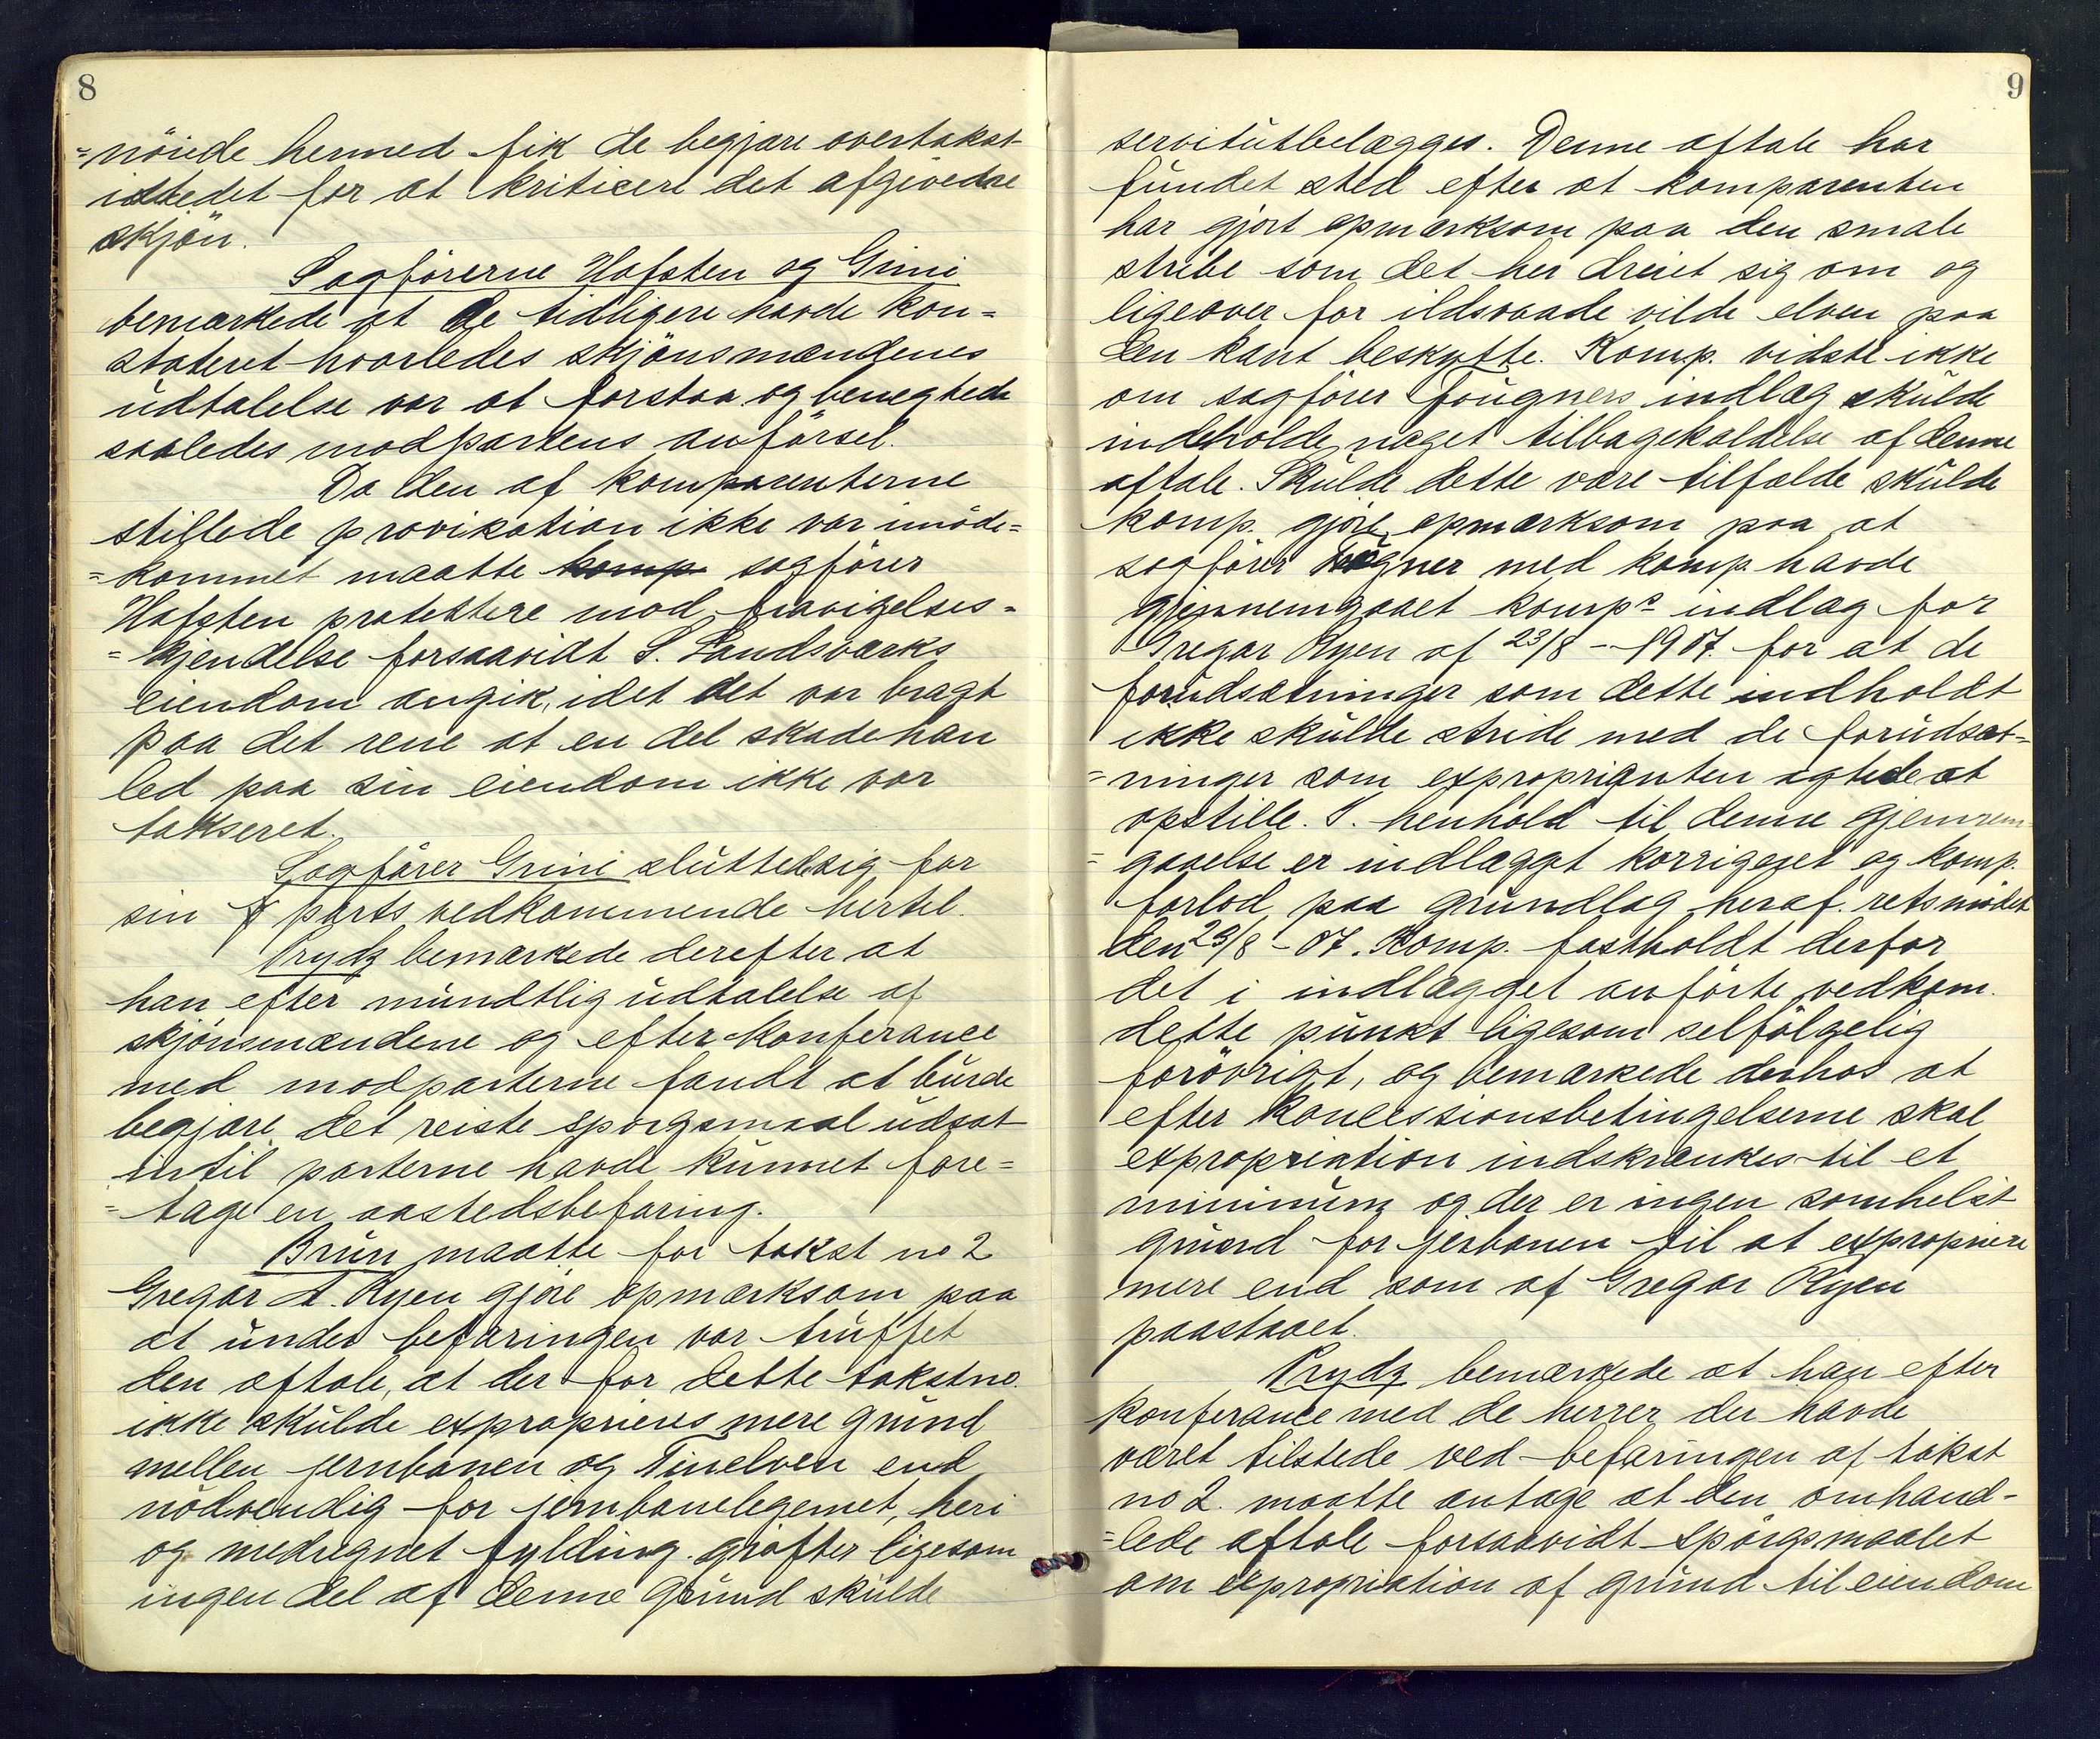 8
=nöiede hermed fik de begjære overtakst
istedet for at kriticere det afgivedne
skjön.
Sagförerne Hofsten og Grini
bemærkede at de tidligere havde kon=
stateret hvorledes skjönsmændenes
udtalelse var at forstaa og benegtede
saaledes modpartens anförsel.
Da den af komparenterne
stillede provikation ikke var imöde=
=kommet maatte komp sagförer
Hofsten protestere mod fravigelses=
=kjendelse forsaavidt S. Landsværks
eiendom angik, idet det var bragt
paa det rene at en del skade han
led paa sin eiendom ikke var
takseret.
Sagförer Grini sluttedsig for
sin parts vedkommende hertil.
Prydz bemærkede derefter at
han efter mundtlig udtalelse af
skjönsmændene og efter konferance
med modparterne fandt at burde
begjære det reiste spörgsmaal udsat
intil parterne havde kunnet fore=
=tage en aastedsbefaring.
Brun maatte for takst no 2
Gregar A. Ryen gjöre opmærksom paa
at under befaringen var truffet
den aftale, at der for dette takstno.
ikke skulde exproprieres mere grund
mellem jernbanen og Tinelven end
nödvendig for jernbanelegemet, heri
og medregnet fylding. gröfter ligesom
ingen del af denne grund skulde
9
servitutbelægges. Denne aftale har
fundet sted efter at komparenten
har gjort opmærksom paa den smale
stribe som det her dreiet sig om og
ligeover for ildsvaade vilde elven paa
den kant beskytte. Komp. vidste ikke
om sagförer Fougners indlæg skulde
indeholde noget tilbagekaldelse af denne
aftale. Skulde dette være tilfælde skulde
komp. gjöre opmærksom paa at
sagförer Fougner med komp. havde
gjennemgaaet komps indlæg for
Gregar Ryen af 23/8 - 1907. for at de
forudsætninger som dette indholdt
ikke skulde stride med de forudsæt=
=ninger som exproprianten agtede at
opstille. I. henhold til denne gjennem=
=gaaelse er indlægget korrigeret og komp.
forlod paa grundlag heraf. retsmödet
den 23/8 - 07. Komp. fastholdt derfor
det i indlægget anförte vedkom.
dette punkt ligesom selfölgelig
forövrigt, og bemærkede derhos at
efter koncessionsbetingelserne skal
expropriation indskrænkes til et
minimum og der er ingen somhelst
grund for jerbanen til at expropriere
mere end som af Gregar Ryen
paastaaet.
Prydz bemærkede at han efter
konferance med de herrer der havde
været tilstede ved befaringen af takst
no 2. maatte antage at den omhand-
=lede aftale forsaavidt spörgsmaalet
om expropriation af grund til eiendom